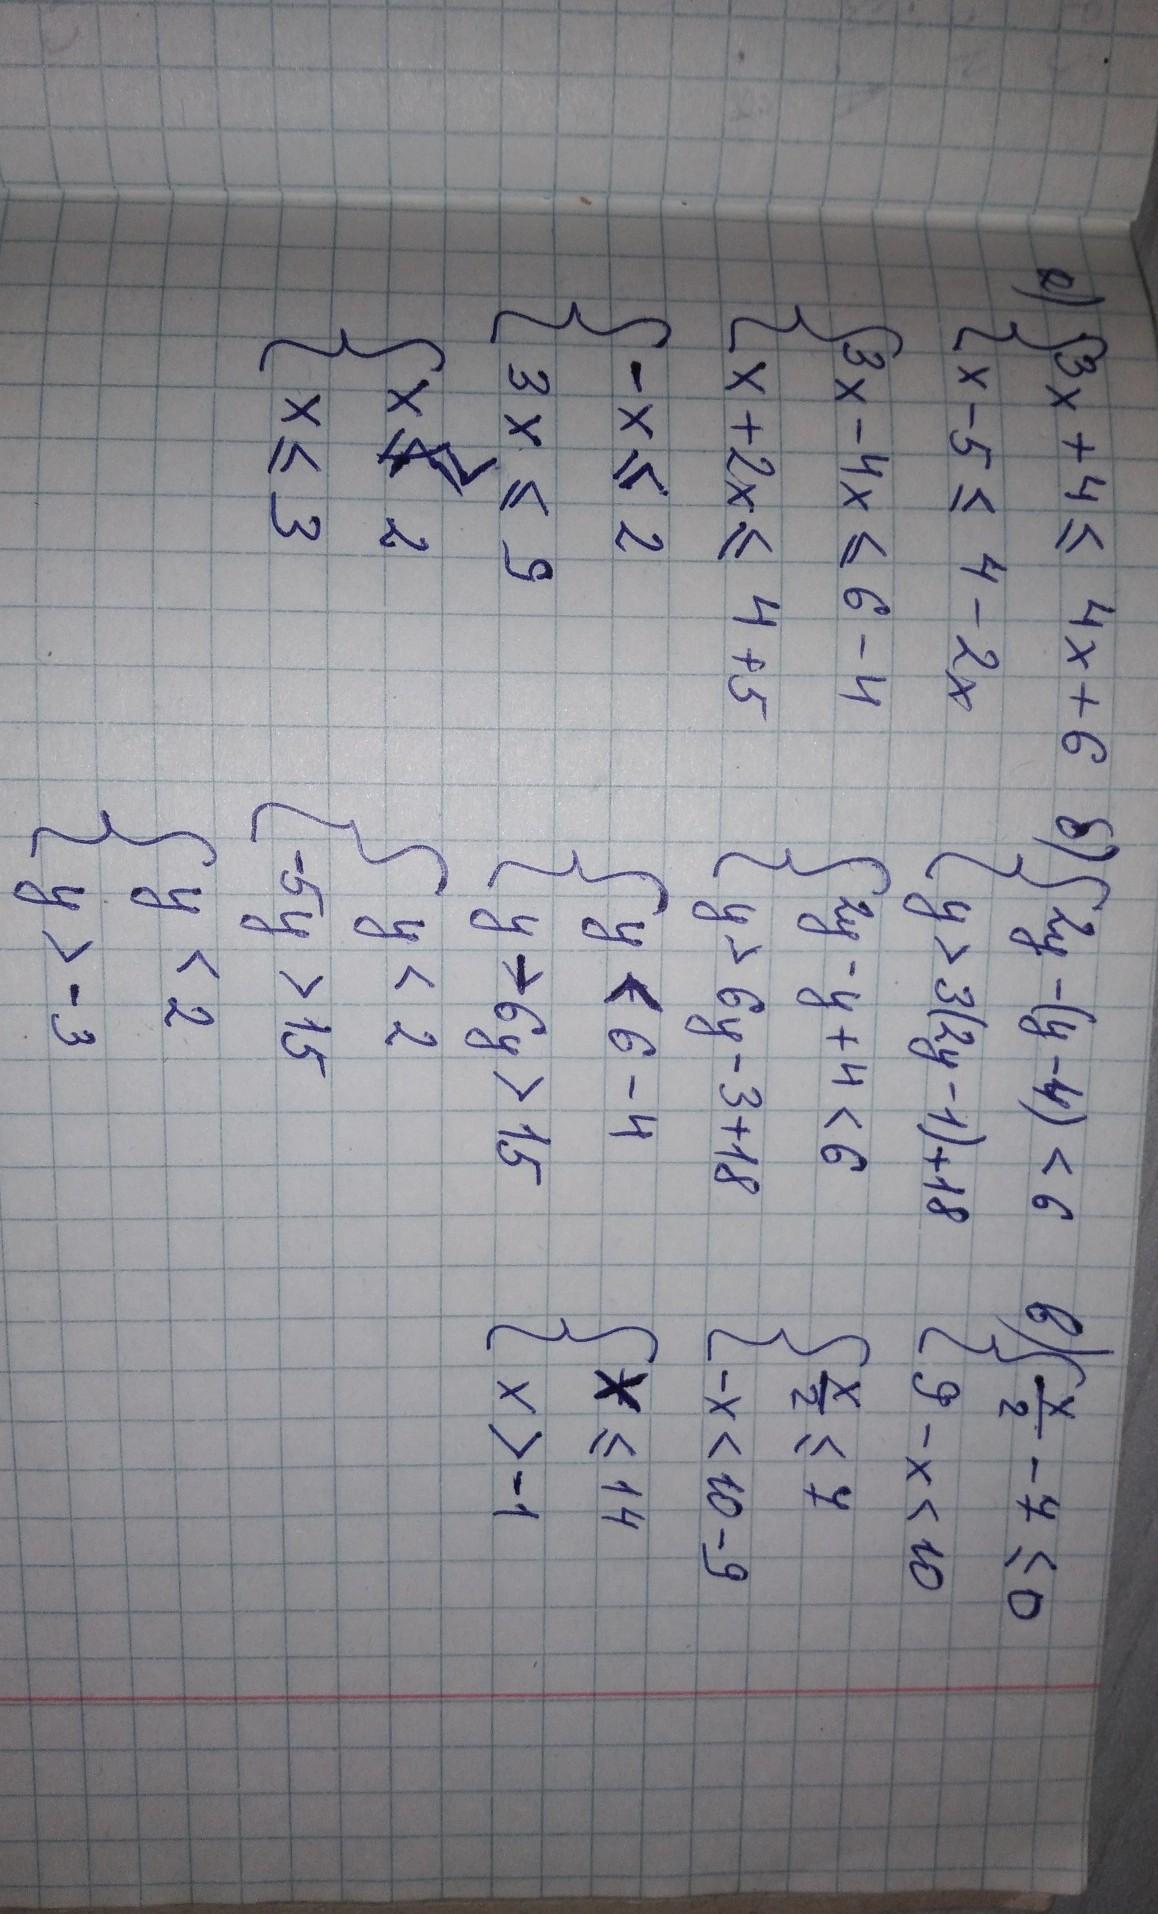 а) { 3x + 4 ≤ 4x + 6
{ x - 5 ≤ 4 - 2x
{ 3x - 4x ≤ 6 - 4
{ x + 2x ≤ 4 + 5
{ -x ≤ 2
{ 3x ≤ 9
{ x ≥ 2
{ x ≤ 3
б) { 2y - (y - 4) < 6
{ y > 3(2y - 1) + 18
{ 2y - y + 4 < 6
{ y > 6y - 3 + 18
{ y < 6 - 4
{ y - 6y > 15
{ y < 2
{ -5y > 15
{ y < 2
{ y > -3
в) { x/2 - 7 ≤ 0
{ 9 - x < 10
{ x/2 ≤ 7
{ -x < 10 - 9
{ x ≤ 14
{ x > -1